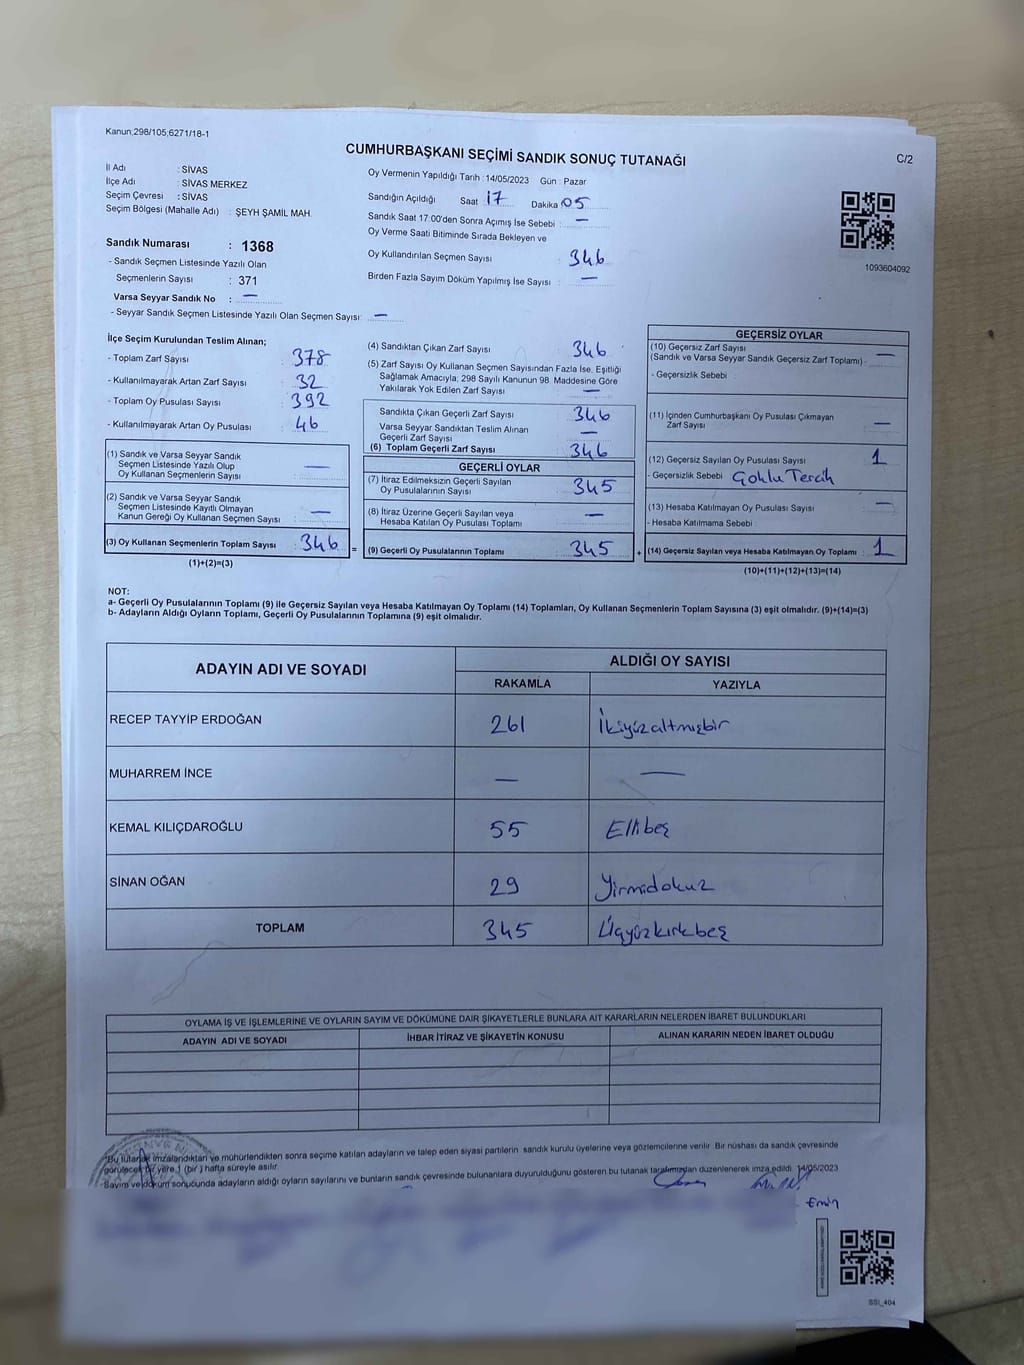 Kanun;298/105;6271/18-1
CUMHURBAŞKANI SEÇİMİ SANDIK SONUÇ TUTANAĞI
C/2
İl Adı : SİVAS
İlçe Adı : SİVAS MERKEZ
Seçim Çevresi : SİVAS
Seçim Bölgesi (Mahalle Adı) : ŞEYH ŞAMİL MAH.
Sandık Numarası : 1368
- Sandık Seçmen Listesinde Yazılı Olan
Seçmenlerin Sayısı : 371
Varsa Seyyar Sandık No : —
- Seyyar Sandık Seçmen Listesinde Yazılı Olan Seçmen Sayısı: —
Oy Vermenin Yapıldığı Tarih :14/05/2023 Gün : Pazar
Sandığın Açıldığı Saat 17 Dakika 05
Sandık Saat 17:00'den Sonra Açımış İse Sebebi : —
Oy Verme Saati Bitiminde Sırada Bekleyen ve
Oy Kullandırılan Seçmen Sayısı 346
Birden Fazla Sayım Döküm Yapılmış İse Sayısı : —
1093604092
İlçe Seçim Kurulundan Teslim Alınan;
- Toplam Zarf Sayısı 378
- Kullanılmayarak Artan Zarf Sayısı 32
- Toplam Oy Pusulası Sayısı 392
- Kullanılmayarak Artan Oy Pusulası 46
(1) Sandık ve Varsa Seyyar Sandık
Seçmen Listesinde Yazılı Olup
Oy Kullanan Seçmenlerin Sayısı : —
(2) Sandık ve Varsa Seyyar Sandık
Seçmen Listesinde Kayıtlı Olmayan
Kanun Gereği Oy Kullanan Seçmen Sayısı : —
(3) Oy Kullanan Seçmenlerin Toplam Sayısı : 346
(1)+(2)=(3)
(4) Sandıktan Çıkan Zarf Sayısı 346
(5) Zarf Sayısı Oy Kullanan Seçmen Sayısından Fazla İse, Eşitliği
Sağlamak Amacıyla; 298 Sayılı Kanunun 98. Maddesine Göre
Yakılarak Yok Edilen Zarf Sayısı : —
Sandıkta Çıkan Geçerli Zarf Sayısı 346
Varsa Seyyar Sandıktan Teslim Alınan
Geçerli Zarf Sayısı —
(6) Toplam Geçerli Zarf Sayısı 346
GEÇERLİ OYLAR
(7) İtiraz Edilmeksizin Geçerli Sayılan
Oy Pusulalarının Sayısı 345
(8) İtiraz Üzerine Geçerli Sayılan veya
Hesaba Katılan Oy Pusulası Toplamı —
=
(9) Geçerli Oy Pusulalarının Toplamı 345
+
GEÇERSİZ OYLAR
(10) Geçersiz Zarf Sayısı
(Sandık ve Varsa Seyyar Sandık Geçersiz Zarf Toplamı) : —
- Geçersizlik Sebebi
(11) İçinden Cumhurbaşkanı Oy Pusulası Çıkmayan
Zarf Sayısı —
(12) Geçersiz Sayılan Oy Pusulası Sayısı 1
- Geçersizlik Sebebi Çoklu Tercih
(13) Hesaba Katılmayan Oy Pusulası Sayısı —
- Hesaba Katılmama Sebebi
(14) Geçersiz Sayılan veya Hesaba Katılmayan Oy Toplamı : 1
(10)+(11)+(12)+(13)=(14)
NOT:
a- Geçerli Oy Pusulalarının Toplamı (9) ile Geçersiz Sayılan veya Hesaba Katılmayan Oy Toplamı (14) Toplamları, Oy Kullanan Seçmenlerin Toplam Sayısına (3) eşit olmalıdır. (9)+(14)=(3)
b- Adayların Aldığı Oyların Toplamı, Geçerli Oy Pusulalarının Toplamına (9) eşit olmalıdır.
ADAYIN ADI VE SOYADI
ALDIĞI OY SAYISI
RAKAMLA YAZIYLA
RECEP TAYYİP ERDOĞAN 261 İkiyüzaltmışbir
MUHARREM İNCE — —
KEMAL KILIÇDAROĞLU 55 Ellibeş
SİNAN OĞAN 29 Yirmidokuz
TOPLAM 345 Üçyüzkırkbeş
OYLAMA İŞ VE İŞLEMLERİNE VE OYLARIN SAYIM VE DÖKÜMÜNE DAİR ŞİKAYETLERLE BUNLARA AİT KARARLARIN NELERDEN İBARET BULUNDUKLARI
ADAYIN ADI VE SOYADI İHBAR İTİRAZ VE ŞİKAYETİN KONUSU ALINAN KARARIN NEDEN İBARET OLDUĞU
*Bu tutanak imzalandıktan ve mühürlendikten sonra seçime katılan adayların ve talep eden siyasi partilerin sandık kurulu üyelerine veya gözlemcilerine verilir. Bir nüshası da sandık çevresinde
görülecek bir yere 1 (bir ) hafta süreyle asılır.
Sayım ve döküm sonucunda adayların aldığı oyların sayılarını ve bunların sandık çevresinde bulunanlara duyurulduğunu gösteren bu tutanak tarafımızdan düzenlenerek imza edildi. 14/05/2023
Emin
SSI_404